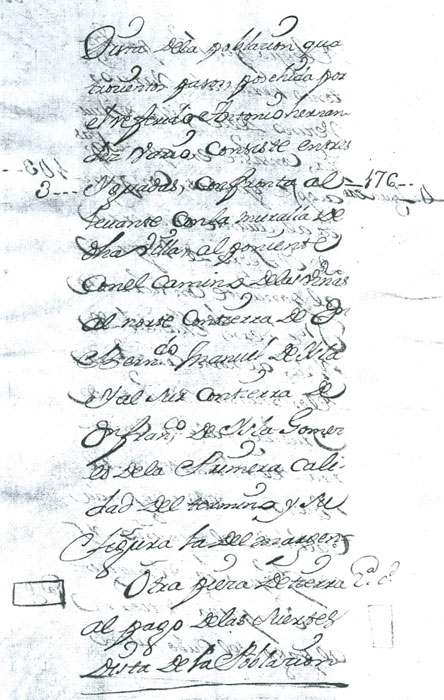 de la poblacion qua
trocientos pasos, poehida por
el referido Antonio hernan
dez Consiste en tres
3... Aguadas, confronta al = 176
levante con la muralla de
dha Villa al poniente
con el Camino de las viñas
al norte con tierra de Dn
Berndo Manuel De Vila
Y al Sur con tierra de
Dn Franco de Vila Gomez
es de la Primera Cali-
dad del termino, y su
figura la del margen
Otra pieza de tierra
al pago de las Suertes
Dista De la Poblacion